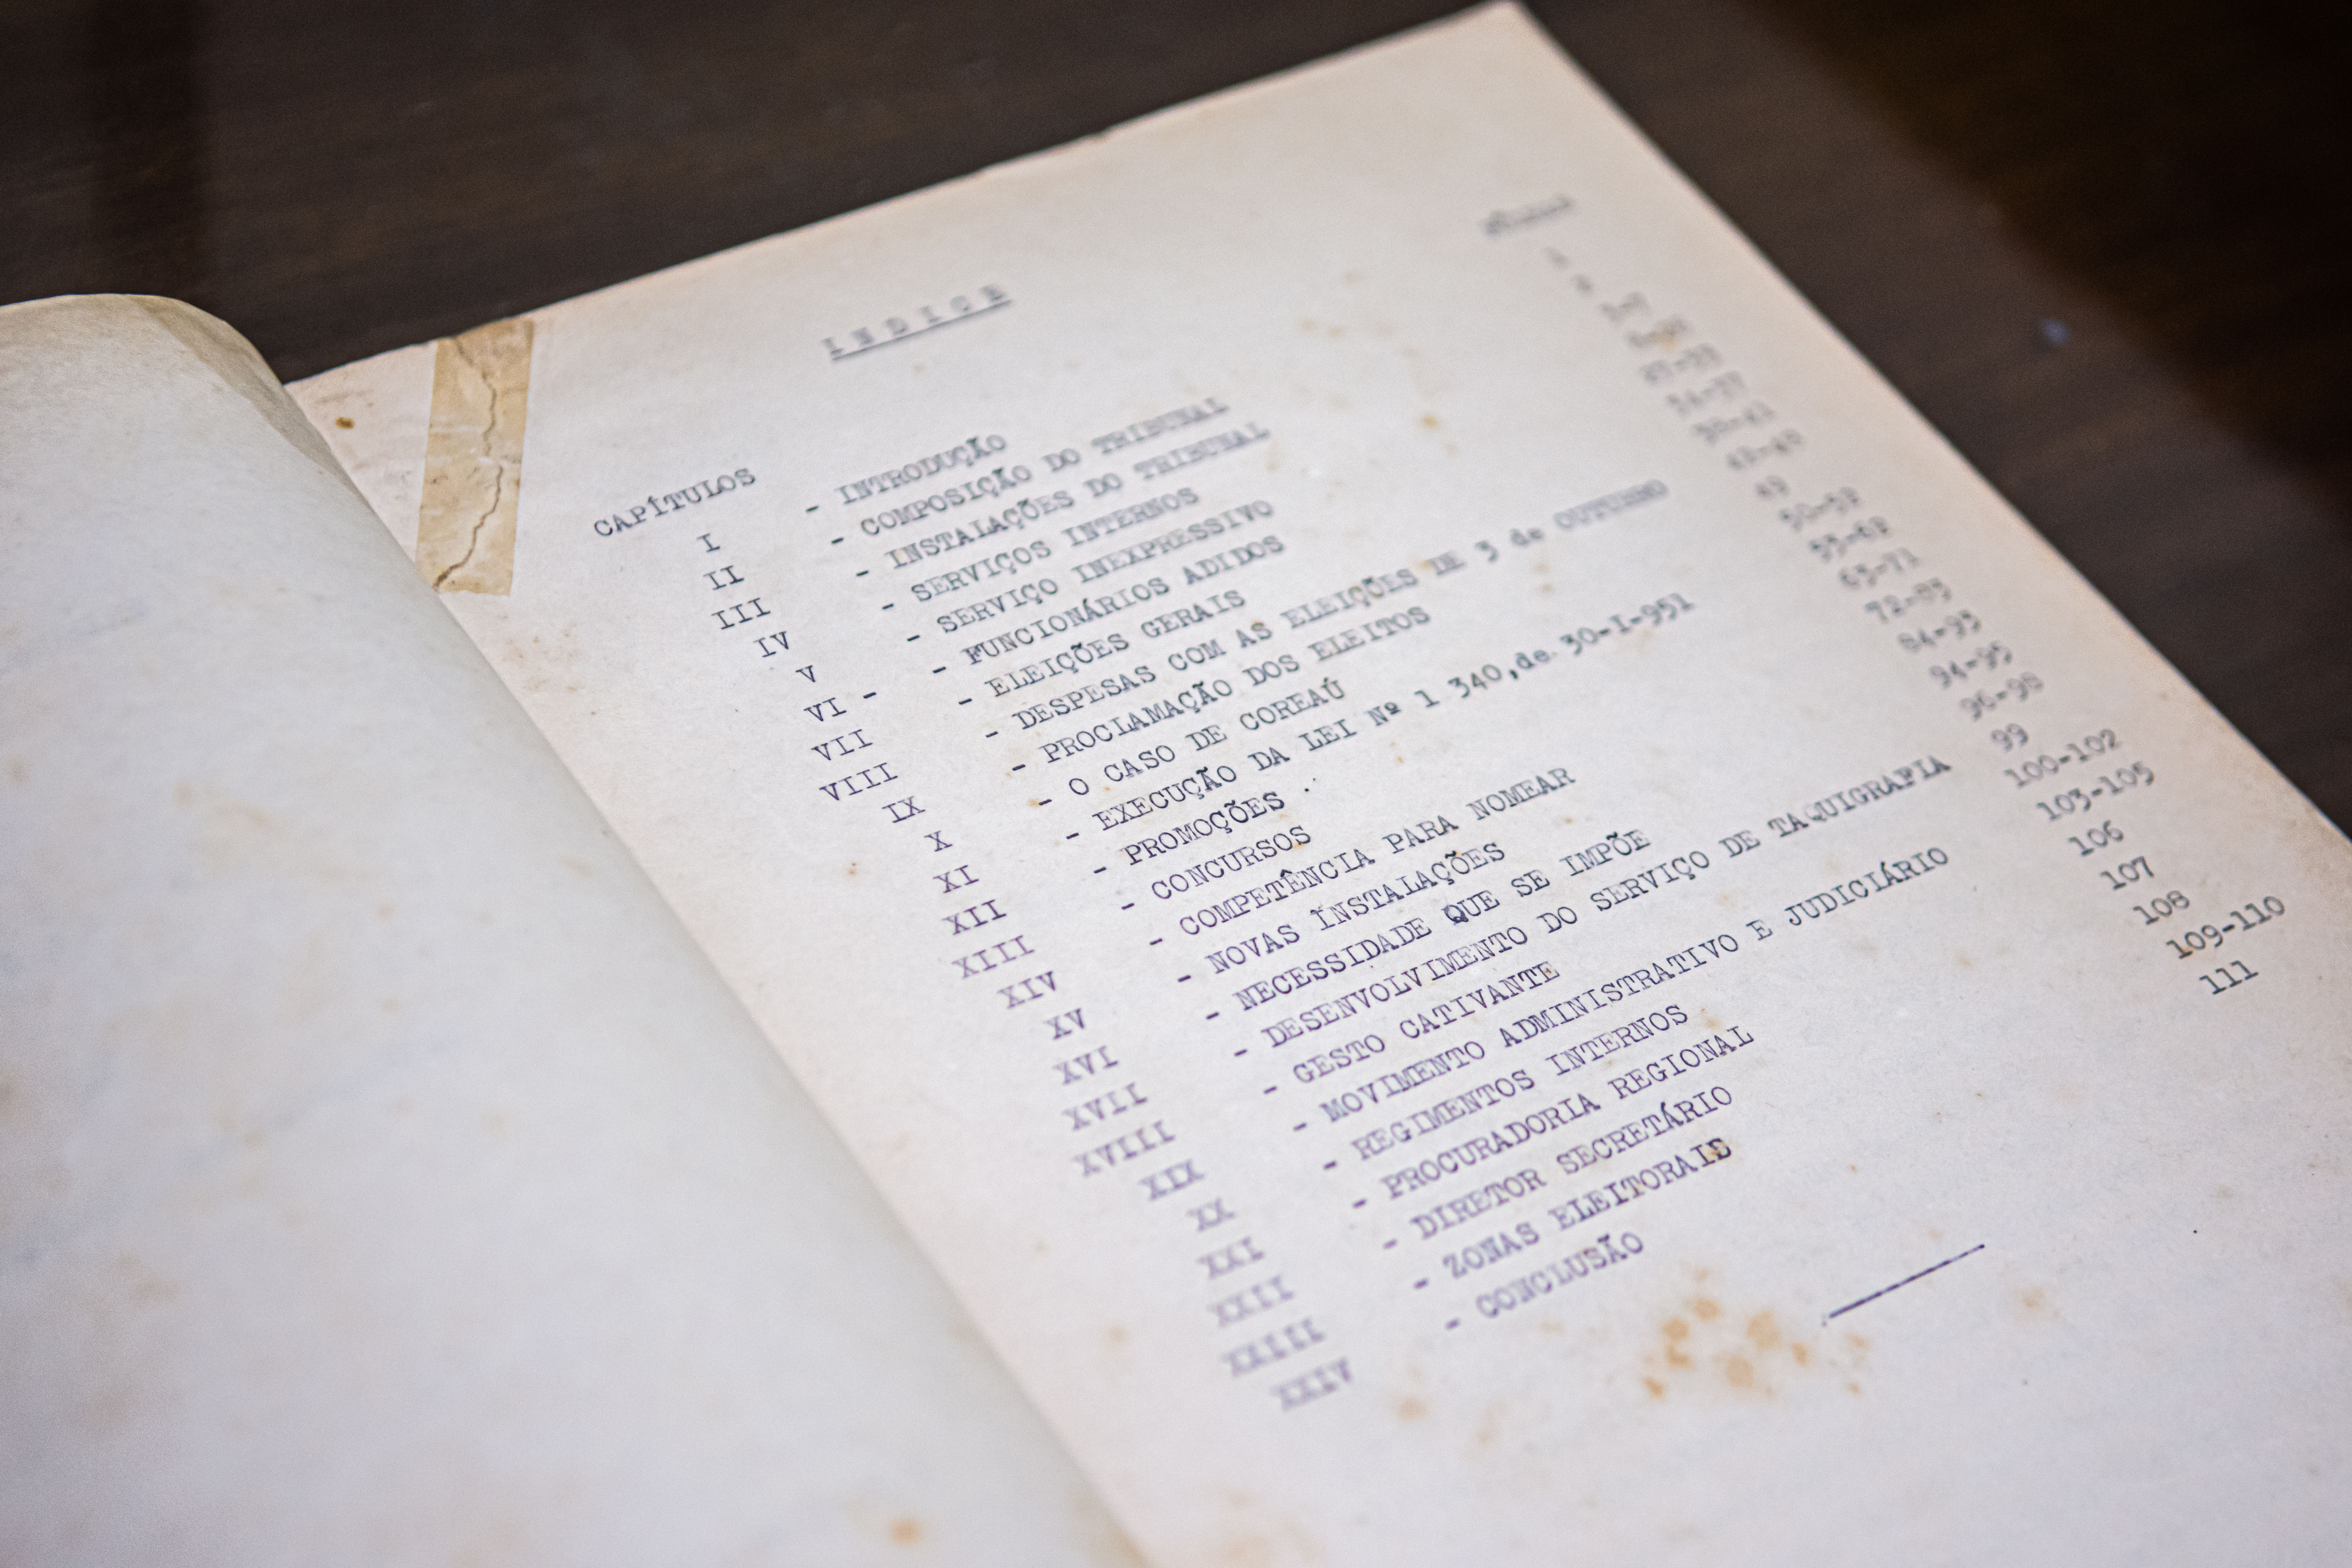 INDICE
CAPÍTULOS
I - INTRODUÇÃO
II - COMPOSIÇÃO DO TRIBUNAL
III - INSTALAÇÕES DO TRIBUNAL
IV - SERVIÇOS INTERNOS
V - SERVIÇO INEXPRESSIVO
VI - - FUNCIONÁRIOS ADIDOS 34-37
VII - ELEIÇÕES GERAIS 38-41
VIII - DESPESAS COM AS ELEIÇÕES DE 3 de OUTUBRO
IX - PROCLAMAÇÃO DOS ELEITOS 49
X - O CASO DE COREAÚ 50-52
XI - EXECUÇÃO DA LEI Nº 1 340,de 30-I-951 53-62
XII - PROMOÇÕES 63-71
XIII - CONCURSOS 72-83
XIV - COMPETÊNCIA PARA NOMEAR 84-93
XV - NOVAS INSTALAÇÕES 94-95
XVI - NECESSIDADE QUE SE IMPÕE 96-98
XVII - DESENVOLVIMENTO DO SERVIÇO DE TAQUIGRAFIA 99
XVIII - GESTO CATIVANTE 100-102
XIX - MOVIMENTO ADMINISTRATIVO E JUDICIÁRIO 103-105
XX - REGIMENTOS INTERNOS 106
XXI - PROCURADORIA REGIONAL 107
XXII - DIRETOR SECRETÁRIO 108
XXIII - ZONAS ELEITORAIS 109-110
XXIV - CONCLUSÃO 111